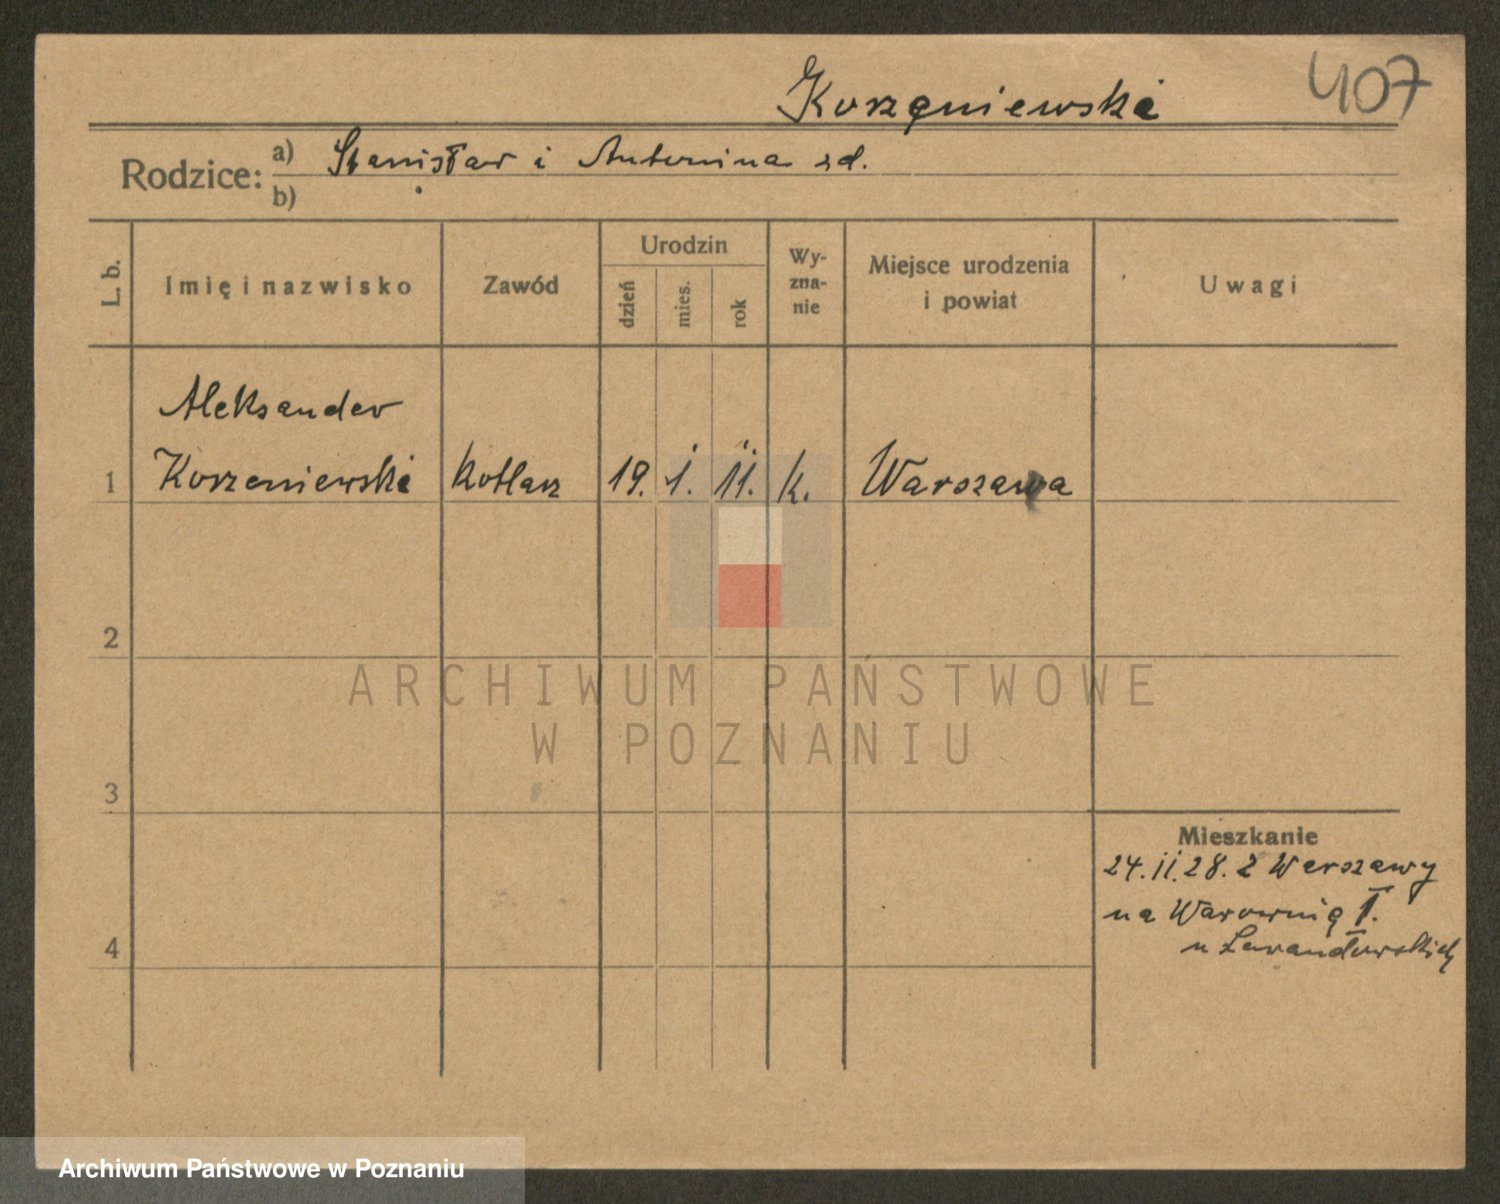 407
Korzeniewski
Rodzice:
a) Stanisław i Antonina zd.
b)
L. b.
Imię i nazwisko
Zawód
Urodzin
dzień
mies.
rok
Wy-
zna-
nie
Miejsce urodzenia
i powiat
Uwagi
Aleksander
1 Korzeniewski kotlarz 19. 1. 11. k. Warszawa
2
3
4
Mieszkanie
24.II.28. z Warszawy
na Warownię I.
u
ARCHIWUM PAŃSTWOWE
W POZNANIU
Archiwum Państwowe w Poznaniu